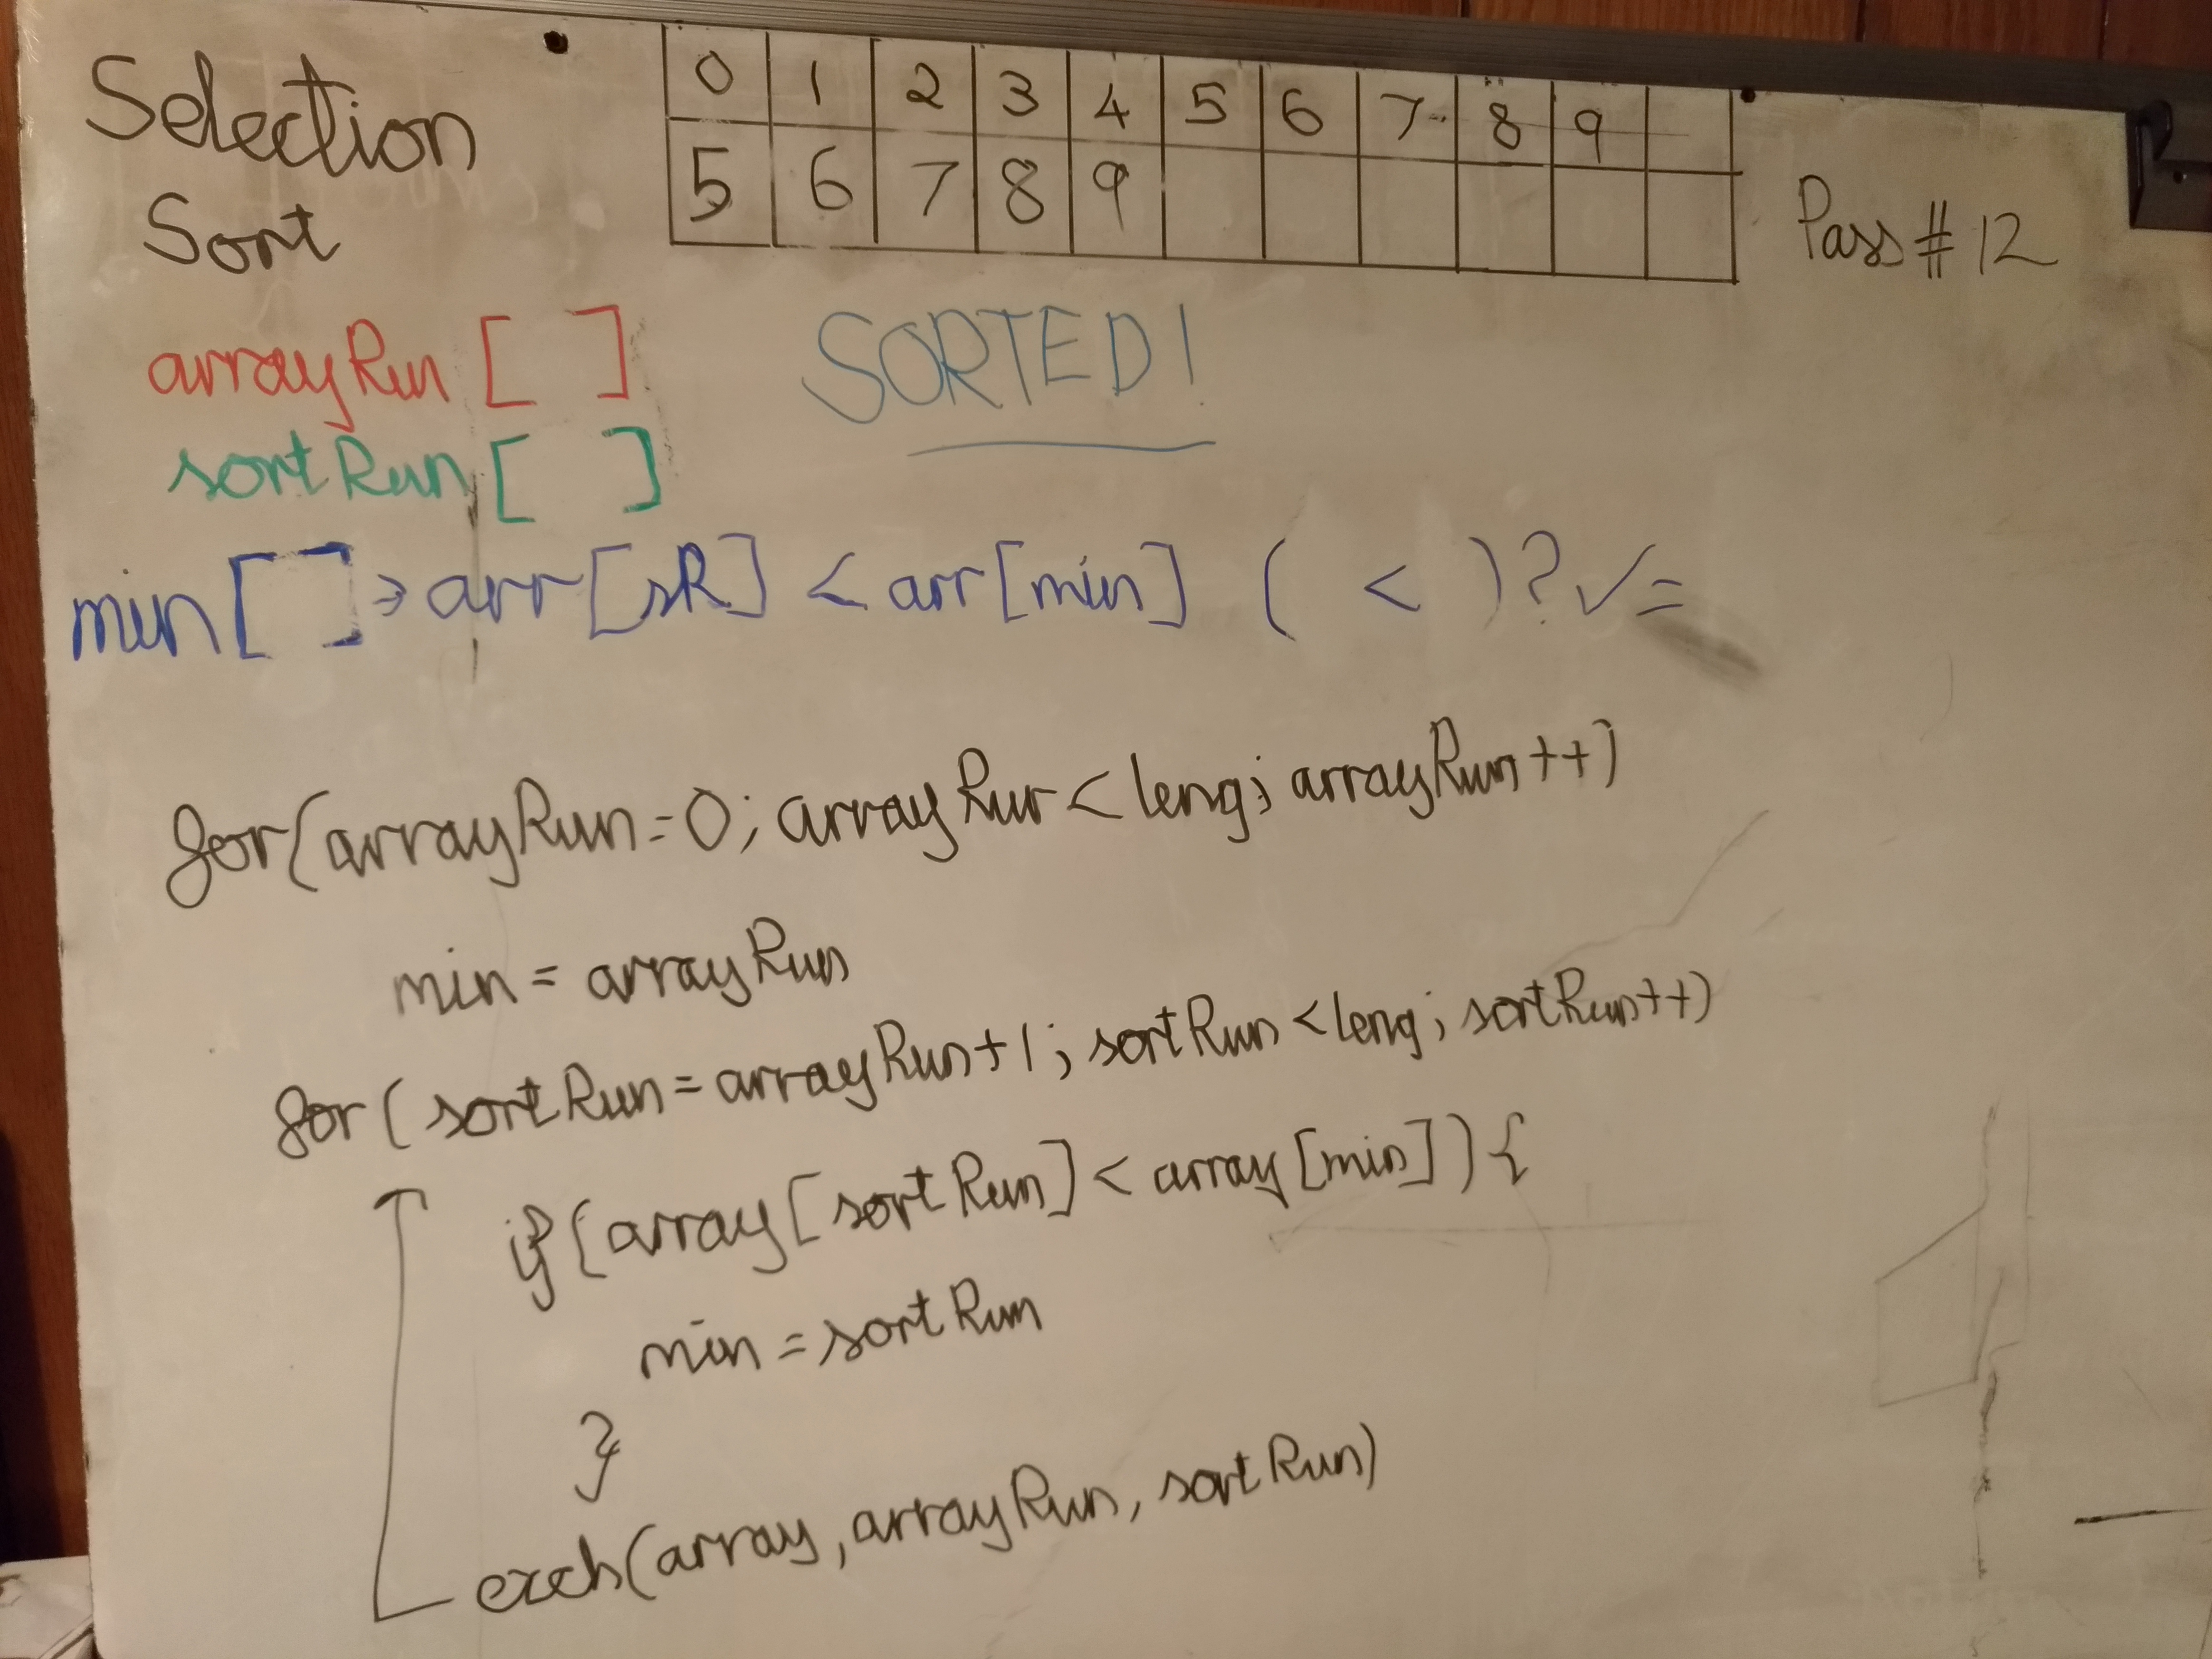 Selection
Sort
0 1 2 3 4 5 6 7 8 9
5 6 7 8 9
Pass # 12
arrayRun [ ]
SORTED!
sortRun [ ]
min [ ] → arr[sR] < arr[min] ( < )? ✓=
for(arrayRun=0; arrayRun<leng; arrayRun++)
min = arrayRun
for( sortRun=arrayRun+1; sortRun<leng; sortRun++)
if(array[sortRun] < array[min]){
min = sortRun
}
exch(array, arrayRun, sortRun)